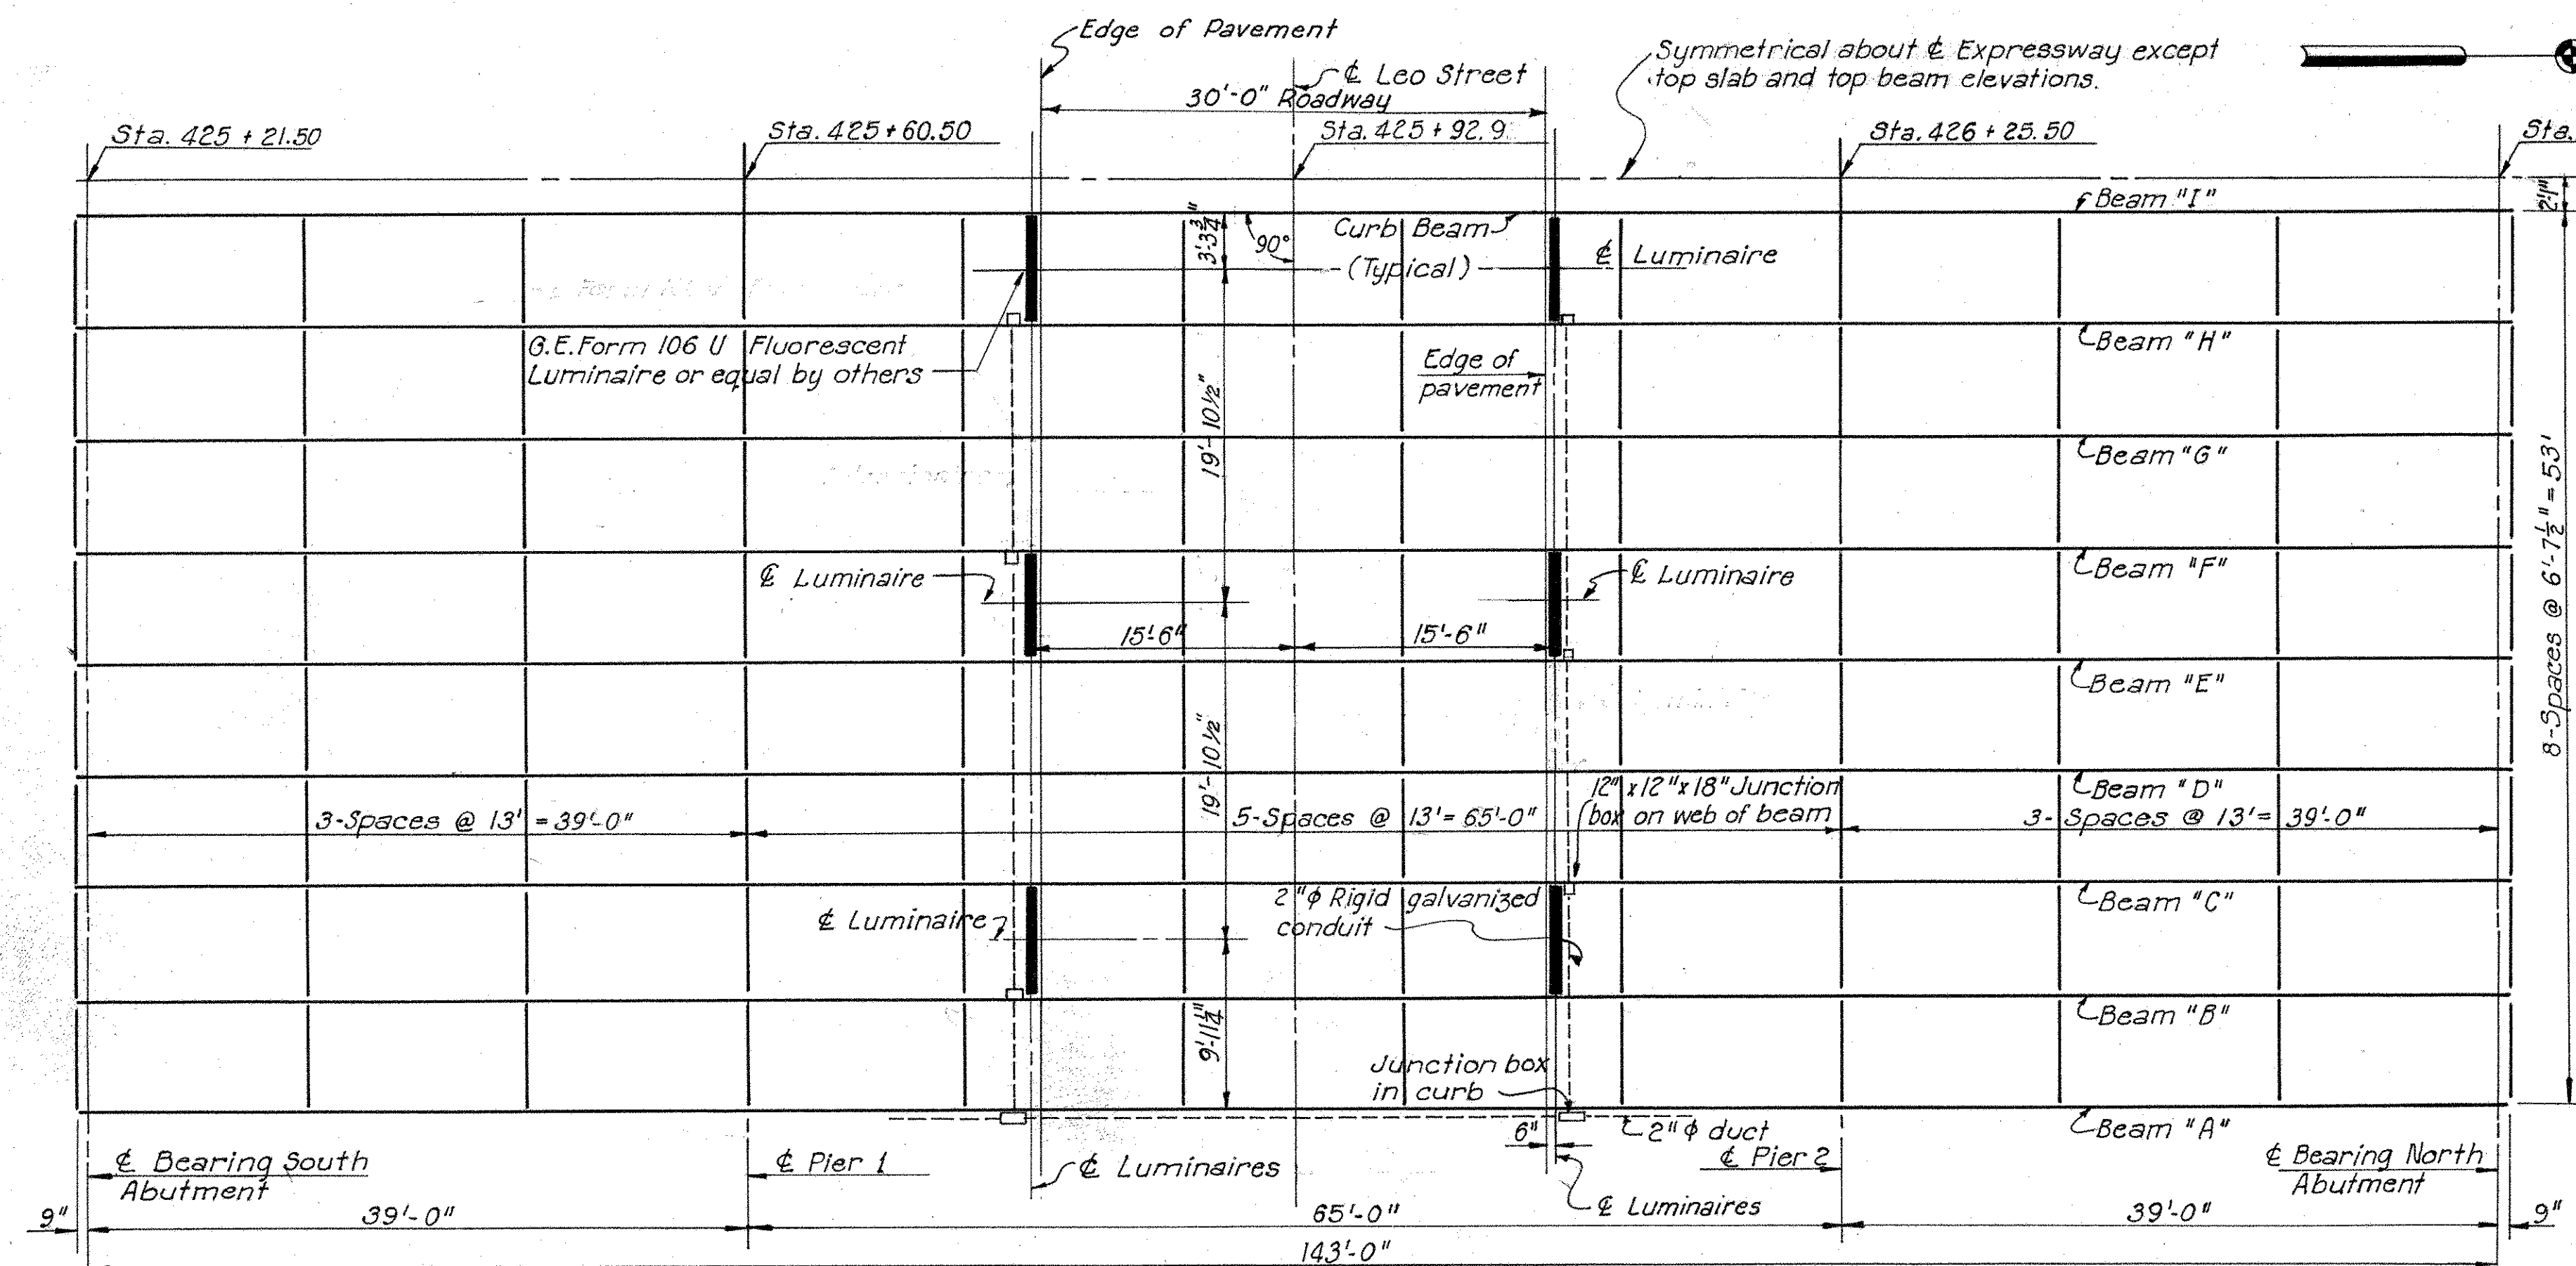 Edge of Pavement
℄ Leo Street
30'-0" Roadway
Symmetrical about ℄ Expressway except
top slab and top beam elevations.
Sta. 425 + 21.50
Sta. 425 + 60.50
Sta. 425 + 92.9
Sta. 426 + 25.50
Sta.
Beam "I"
2'-1"
3'-3 3/4"
90°
Curb Beam
(Typical)
℄ Luminaire
G.E. Form 106 U Fluorescent
Luminaire or equal by others
Edge of
pavement
Beam "H"
19'-10 1/2"
Beam "G"
8-Spaces @ 6'-7 1/2" = 53'
℄ Luminaire
℄ Luminaire
Beam "F"
15'-6"
15'-6"
Beam "E"
19'-10 1/2"
12" x 12" x 18" Junction
box on web of beam
Beam "D"
3-Spaces @ 13' = 39'-0"
5-Spaces @ 13' = 65'-0"
3-Spaces @ 13' = 39'-0"
2" ϕ Rigid galvanized
conduit
℄ Luminaire
Beam "C"
9'-11 1/4"
Beam "B"
Junction box
in curb
6"
2" ϕ duct
Beam "A"
℄ Bearing South
Abutment
℄ Pier 1
℄ Luminaires
℄ Pier 2
℄ Bearing North
Abutment
℄ Luminaires
9"
39'-0"
65'-0"
39'-0"
9"
143'-0"